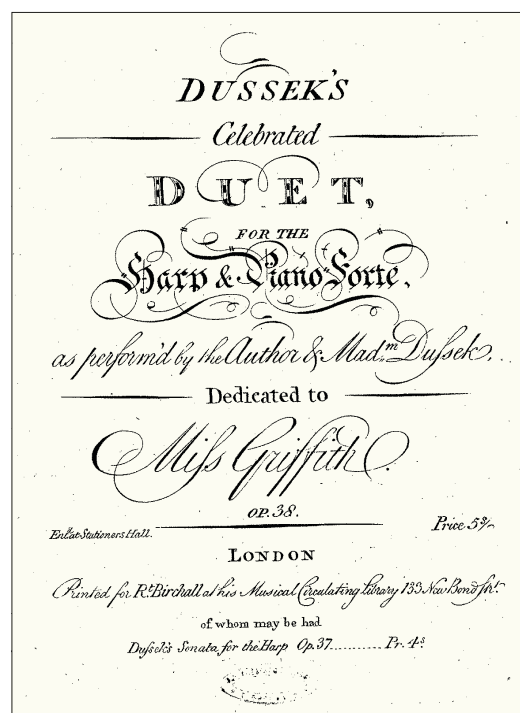 DUSSEK'S
Celebrated
DUET,
FOR THE
Harp & Piano Forte,
as perform'd by the Author & Mad.m Dussek,
Dedicated to
Miss Griffith.
OP. 38.
Ent.at Stationers Hall.
Price 5s/-
LONDON
Printed for R.t Birchall at his Musical Circulating Library 133 New Bond Str.t
of whom may be had
Dussek's Sonata for the Harp Op. 37........... Pr. 4s